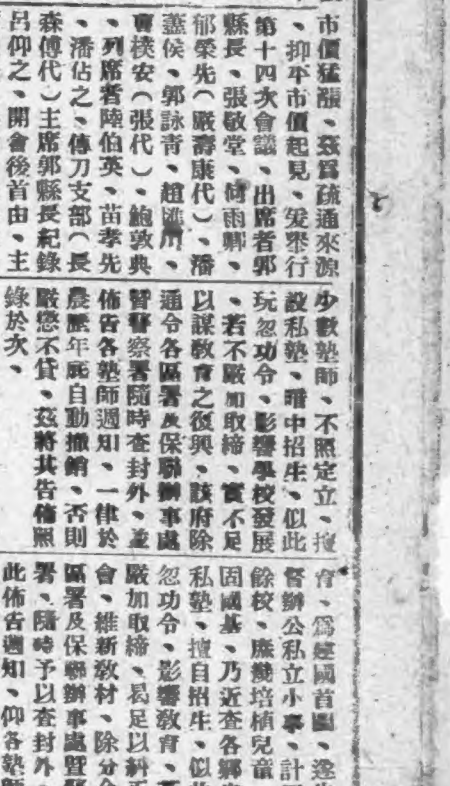 市價猛漲、茲爲疏通來源
、抑平市價起見、爰舉行
第十四次會議、出席者郭
縣長、張敬堂、何雨卿、
郁榮先(嚴壽康代)、潘
藎侯、郭詠青、趙
賈樸安(張代)、鮑敦典
、列席者陸伯英、苗孝先
、潘佔之、傳刀支部(長
森傳代)主席郭縣長紀錄
呂仰之、開會後首由、主
少數塾師、不照定立、擅
設私塾、暗中招生、似此
玩忽功令、影響學校發展
、若不嚴加取締、實不足
以謀敎育之復興、該府除
通令各區署及保聯辦事處
曁警察署隨時查封外、並
佈告各塾師週知、一律於
農歷年底自動撤銷、否則
嚴懲不貸、茲將其告佈照
錄於次、
育、爲建國首圖、
督辦公私立小學、計
餘校、庶幾培植兒童
固國基、乃近查各鄉
私塾、擅自招生、似
忽功令、影響敎育、
嚴加取締、曷足以糾
會、維新敎材、除分
區署及保聯辦事處曁
署、隨時予以查封外
此佈告週知、仰各塾師